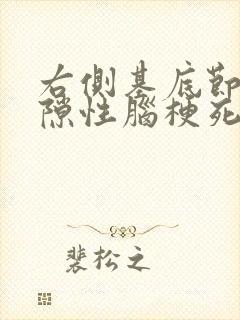 右側基底節
隙性腦梗死
裴松之